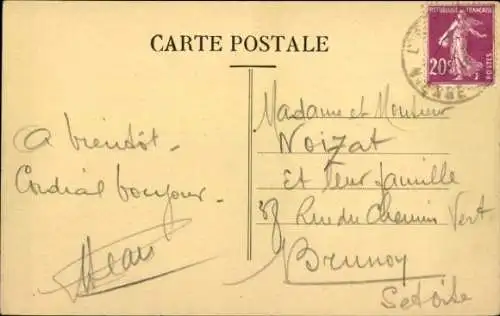 CARTE POSTALE
REPUBLIQUE FRANÇAISE
20c
POSTES
A bientôt -
Cordial bonjour -
Madame et Monsieur
Noizat
Et leur famille
Rue du Chemin Vert
Brunoy